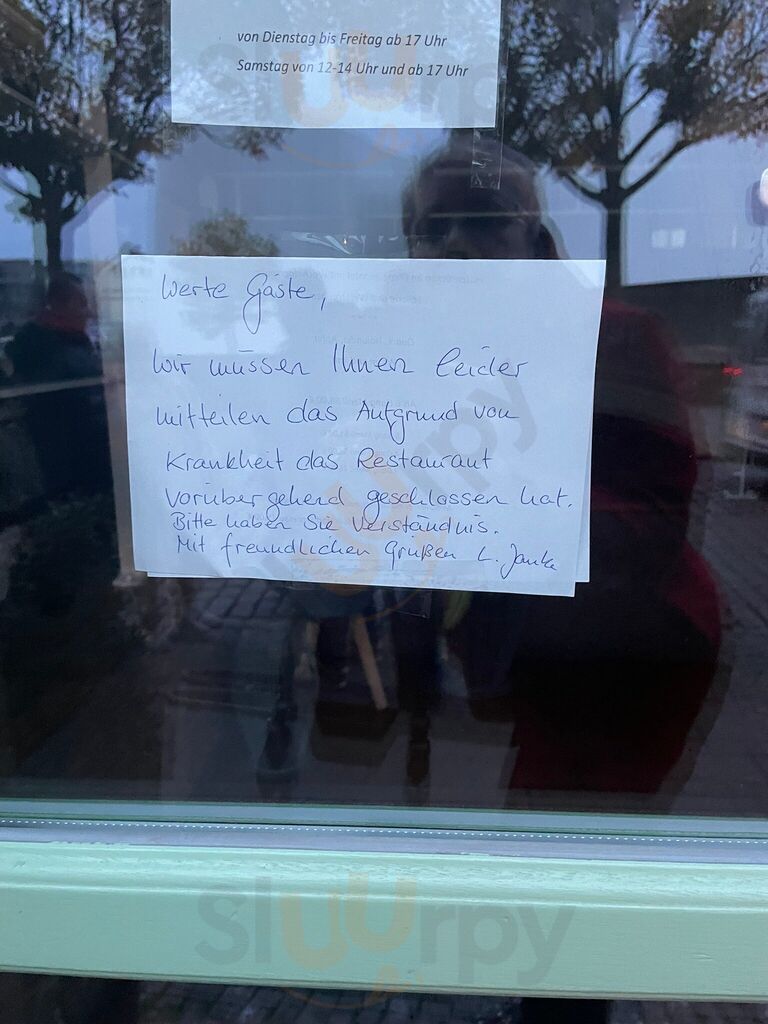 von Dienstag bis Freitag ab 17 Uhr
Samstag von 12-14 Uhr und ab 17 Uhr
Werte Gäste,
Wir müssen Ihnen leider
mitteilen das Aufgrund von
Krankheit das Restaurant
vorübergehend geschlossen hat.
Bitte haben Sie Verständnis.
Mit freundlichen Grüßen L. Janka
sluurpy
sluurpy
sluurpy